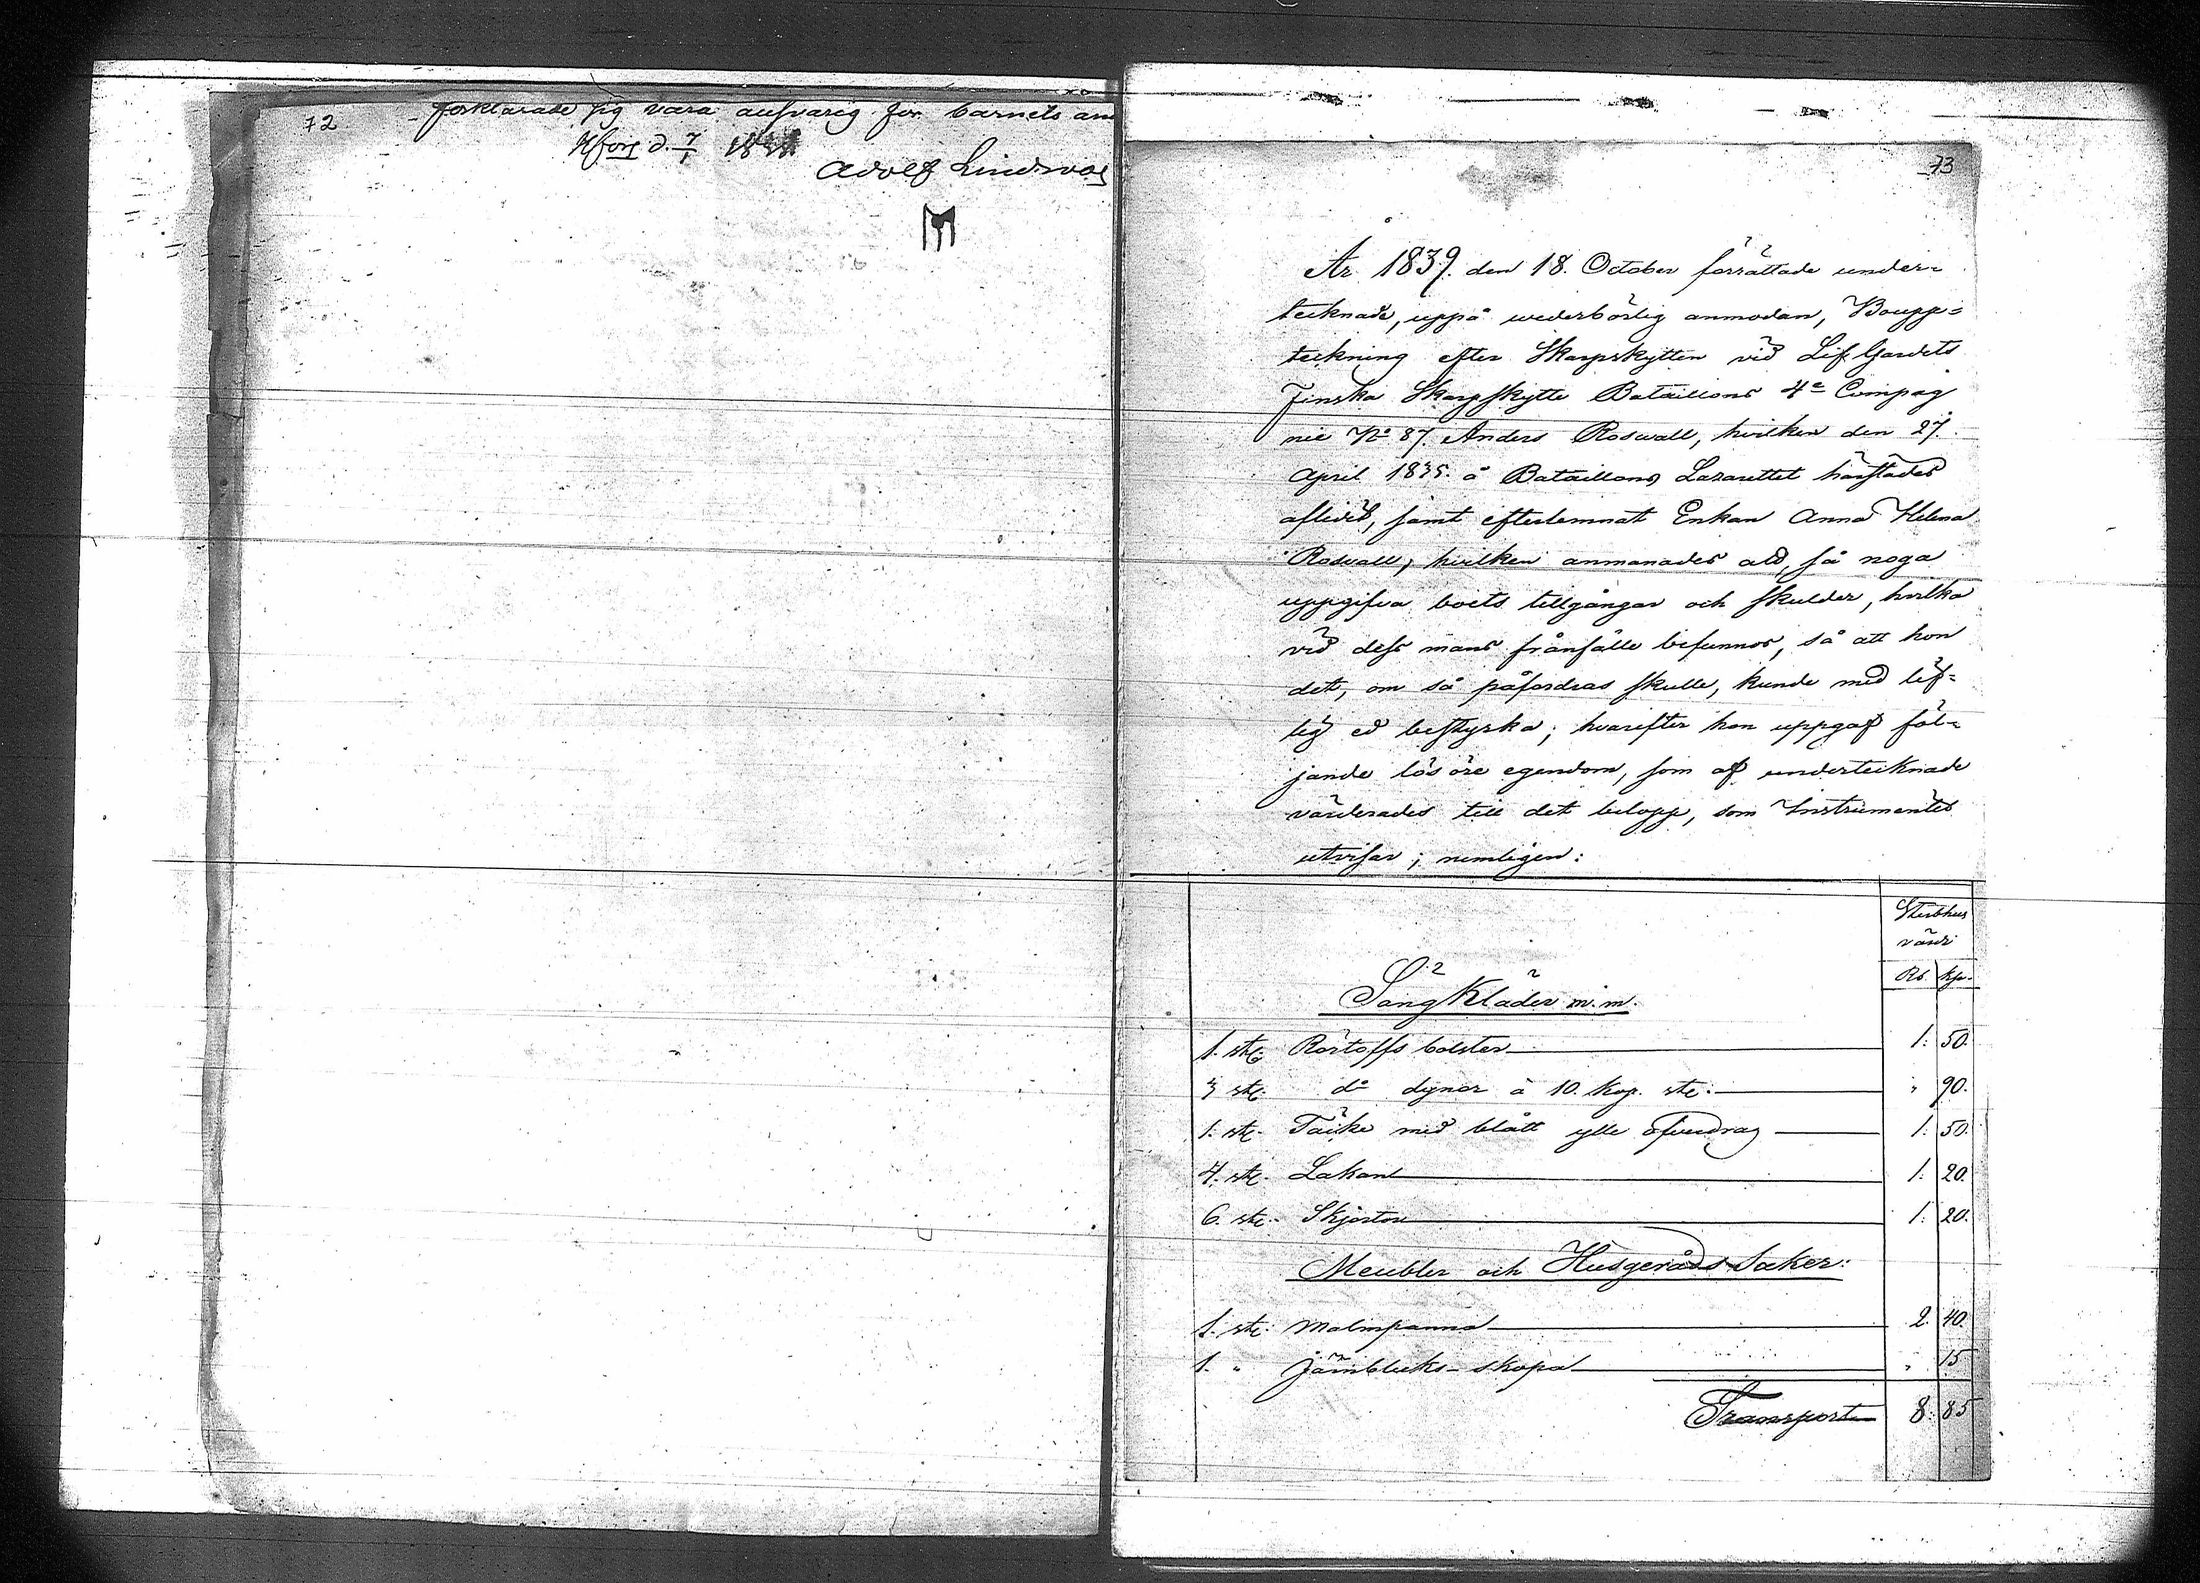 72
förklarade sig vara ansvarig för barnets
Hfors d. 7/1
Adolf
73
År 1839. den 18. October förrättade under-
tecknade, uppå wederbörlig anmodan, Boupp-
teckning efter Skarpskytten vid Lif Gardets
Finska Skarpskytte Bataillons 4e Compag
nie No 87. Anders Roswall, hvilken den 27.
April 1835. å Bataillons Lazarettet härstädes
aflidit, samt efterlemnat Enkan Anna Helena
Roswall, hvilken anmanades att, så noga
uppgifva boets tillgångar och skulder, hvilka
vid dess mans frånfälle befunnos, så att hon
det, om så påfordras skulle, kunde med lif-
lig ed bestyrka; hvarefter hon uppgaf föl-
jande lösöre egendom, som af undertecknade
värderades till det belopp, som Instrumentet
utvisar; nemligen:
Sterbhus
värde
Rb. kp.
Sängkläder m. m.
1. stc. bolster 1. 50.
3 stc. do dynor à 10. kop. stc: " 90.
1. stc. Täcke med blått ylle öfverdrag 1. 50.
4. stc. Lakan 1. 20.
6. stc. Skjortor 1. 20.
Meubler och Husgeråds Saker:
1. stc. Malmpanna 2. 40.
1. " Järnblecks-skopa " 15
Transport 8. 85